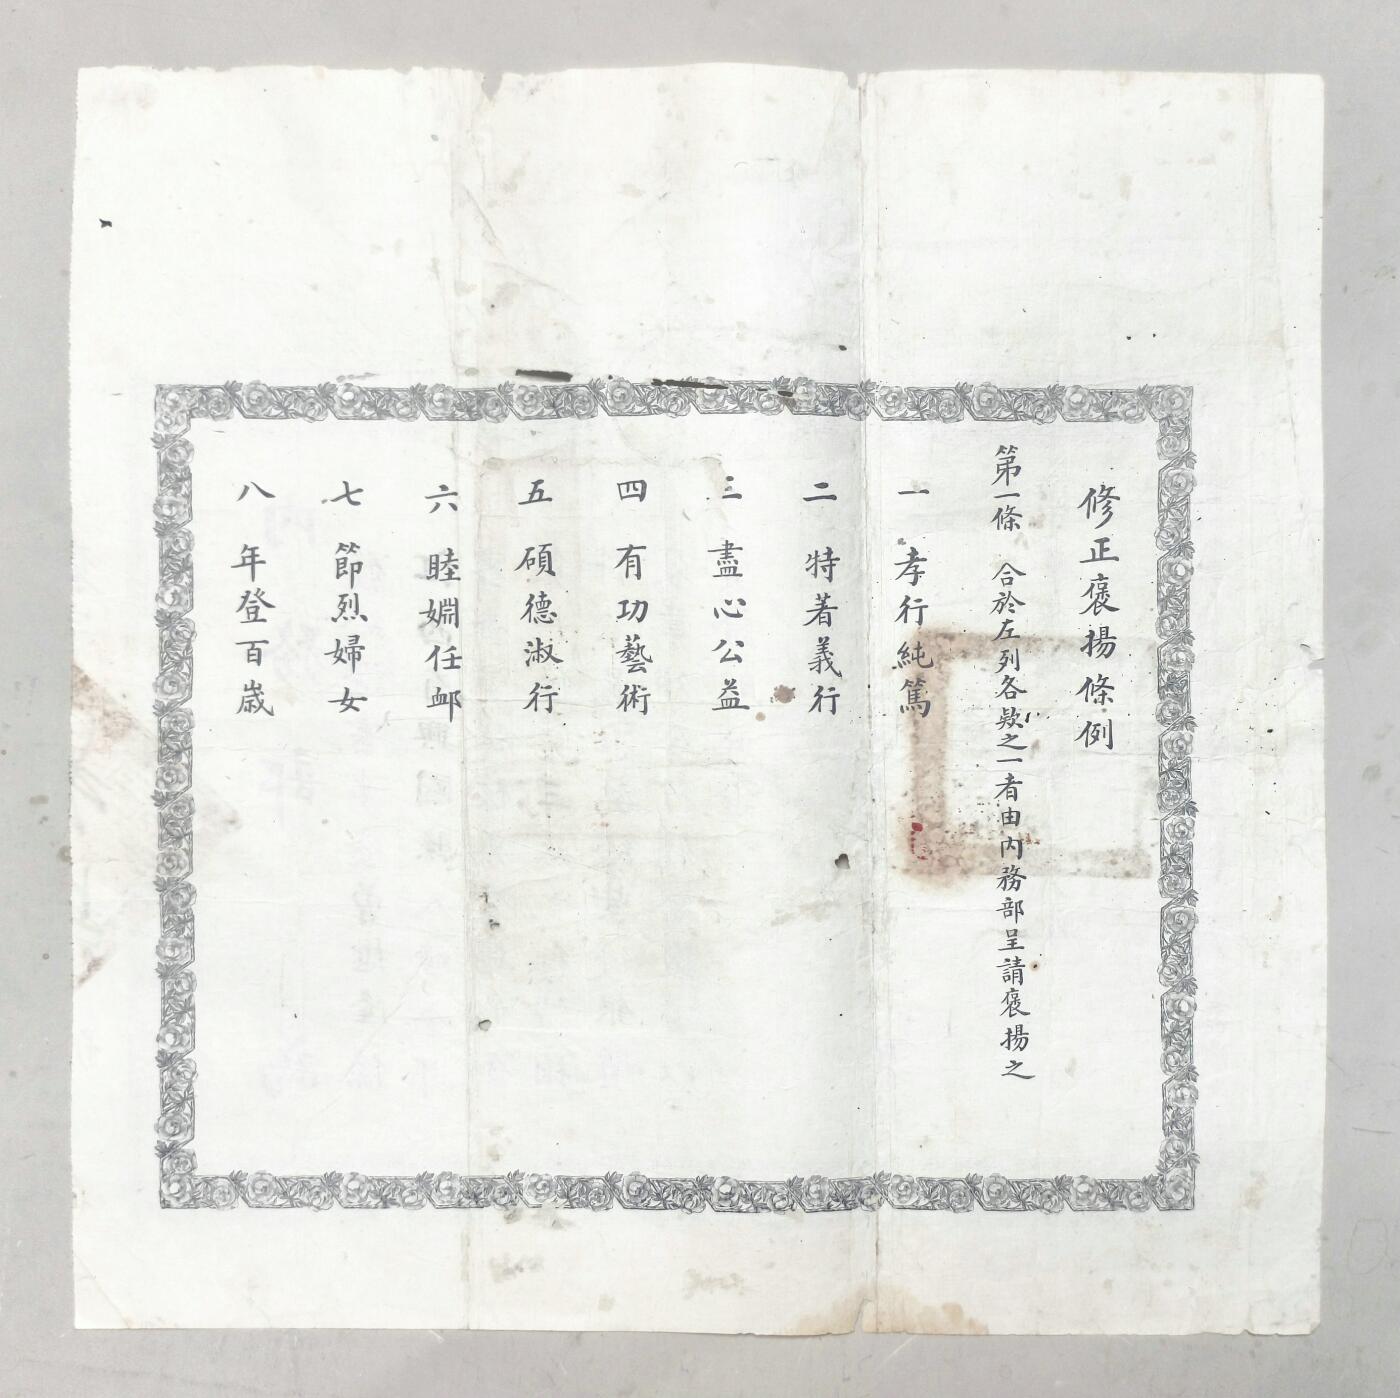 修正褒揚條例
第一條　合於左列各款之一者由內務部呈請褒揚之
一　孝行純篤
二　特著義行
三　盡心公益
四　有功藝術
五　碩德淑行
六　睦婣任卹
七　節烈婦女
八　年登百歲